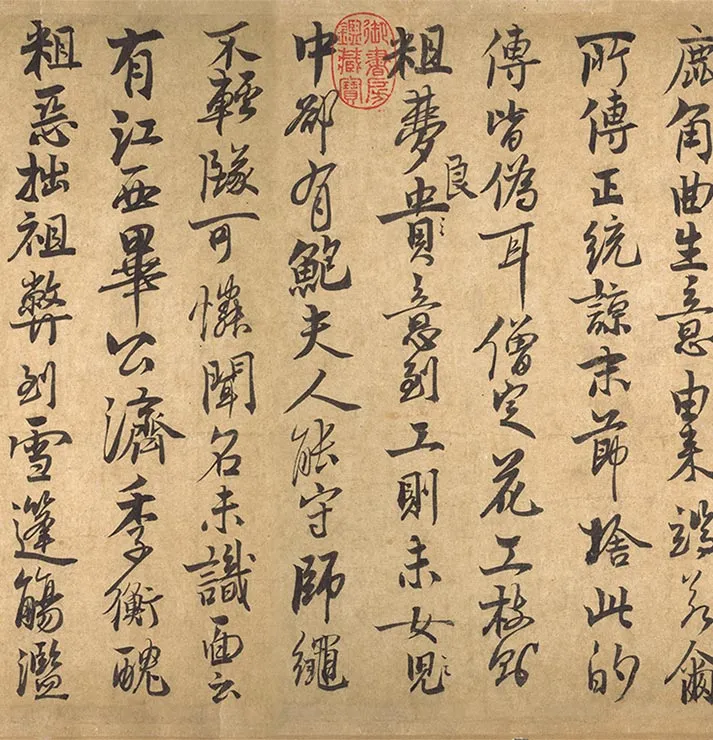 鹿角曲生意由来端若爾
所傳正統諒末節捨此的
傳皆偽耳僧定花工枝則
粗夢良貴意到工則未女兒
中卻有鮑夫人能守師繩
不輕墜可憐聞名未識面云
有江西畢公濟季衡醜
粗惡拙祖弊到雪篷觴濫
御書房鑑藏寶